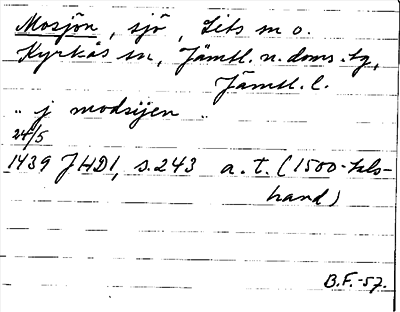 Mosjön, sjö, Lits sn o.
Kyrkås sn, Jämtl. n. doms.tg,
Jämtl. l.
„ j modsijen „
24/5
1439 JHD1, s.243 a.t. (1500-tals-
hand)
B.F.-57.